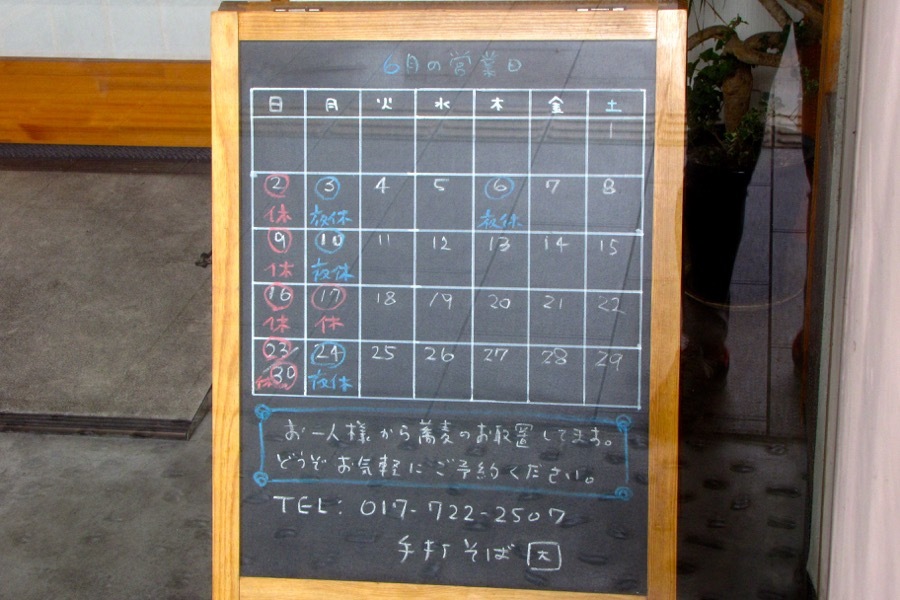 6月の営業日
日 月 火 水 木 金 土
1
2 3 4 5 6 7 8
休 夜休 夜休
9 10 11 12 13 14 15
休 夜休
16 17 18 19 20 21 22
休 休
23/30 24 25 26 27 28 29
夜休
お一人様から蕎麦のお取置してます。
どうぞお気軽にご予約ください。
TEL: 017-722-2507
手打そば 大